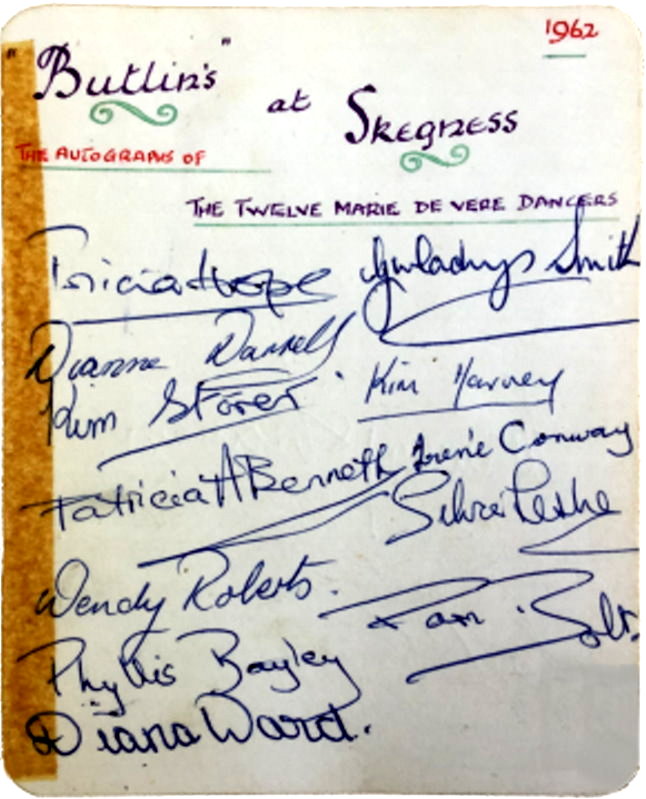 1962
"Butlin's" at Skegness
THE AUTOGRAPHS OF
THE TWELVE MARIE DE VERE DANCERS
Tricia Hope Gwladys Smith
Dianne Darrell
Kim Storer Kim Harvey
Patricia A Bennett Irene Conway
Wendy Roberts. Pam
Phyllis Bayley
Diana Ward.